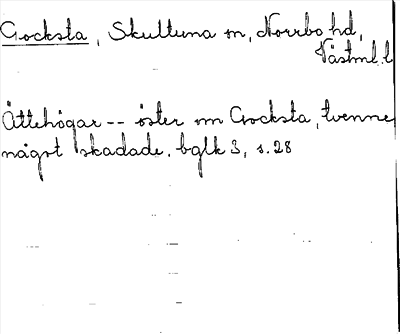 Gocksta, Skultuna sn, Norrbo hd,
Västml. l
Ättehögar -- öster om Gocksta, tvenne,
något skadade. bglk 3, s. 28